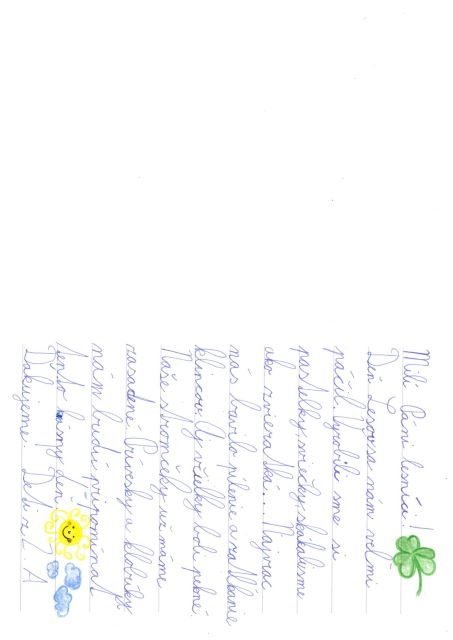 Milí Páni lesníci!
Deň Lesov sa nám veľmi
páčil. Vyrobili sme si
pastelky, sviečky, skákali sme
ako zvieratká... Najviac
nás bavilo pílenie a zatĺkanie
klincov. Aj včielky boli pekné.
Naše stromčeky už máme
zasadené. Prívesky a klobúčky
nám budú pripomínať
tento krásny deň
Ďakujeme. Deti z 2. A